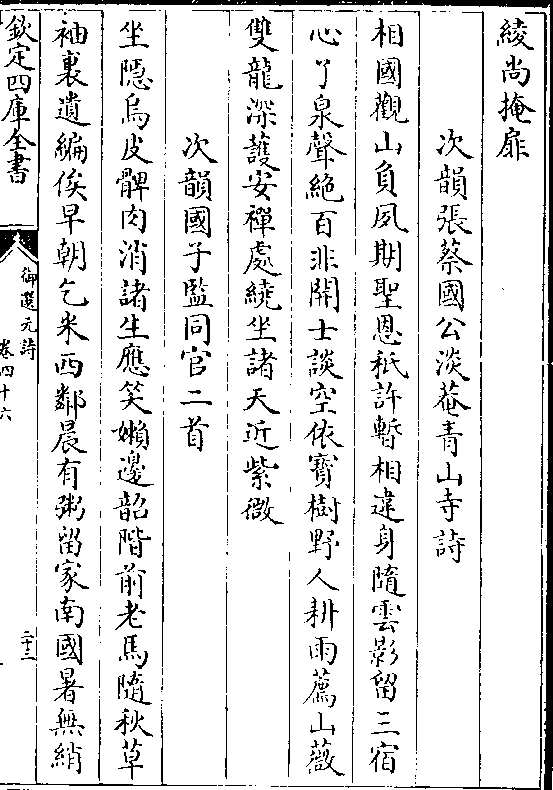 綾尚掩扉
次韻張蔡國公淡菴青山寺詩
相國觀山負夙期聖恩秖許暫相違身隨雲影留三宿
心了泉聲絕百非開士談空依寳樹野人耕雨薦山薇
雙龍深護安禪處繞坐諸天近紫微
次韻國子監同官二首
坐隠烏皮髀肉消諸生應笑嬾邊韶階前老馬隨秋草
袖裏遺編俟早朝乞米西鄰晨有粥留家南國暑無綃
欽定四庫全書
御選元詩
卷四十六
二十三